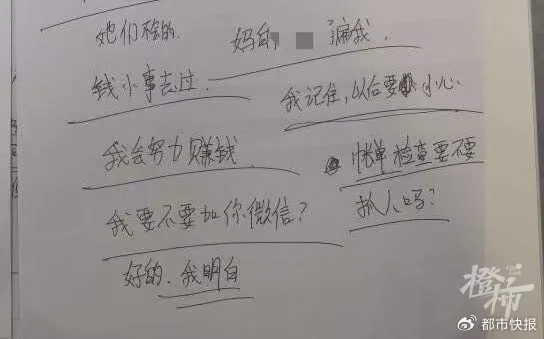 她们不怪的.
妈的 骗我.
钱小事去过.
我记住,以后要小心
我会努力赚钱
帐单检查要不要
抓人吗?
我要不要加你微信?
好的.我明白
橙柿
都市快报